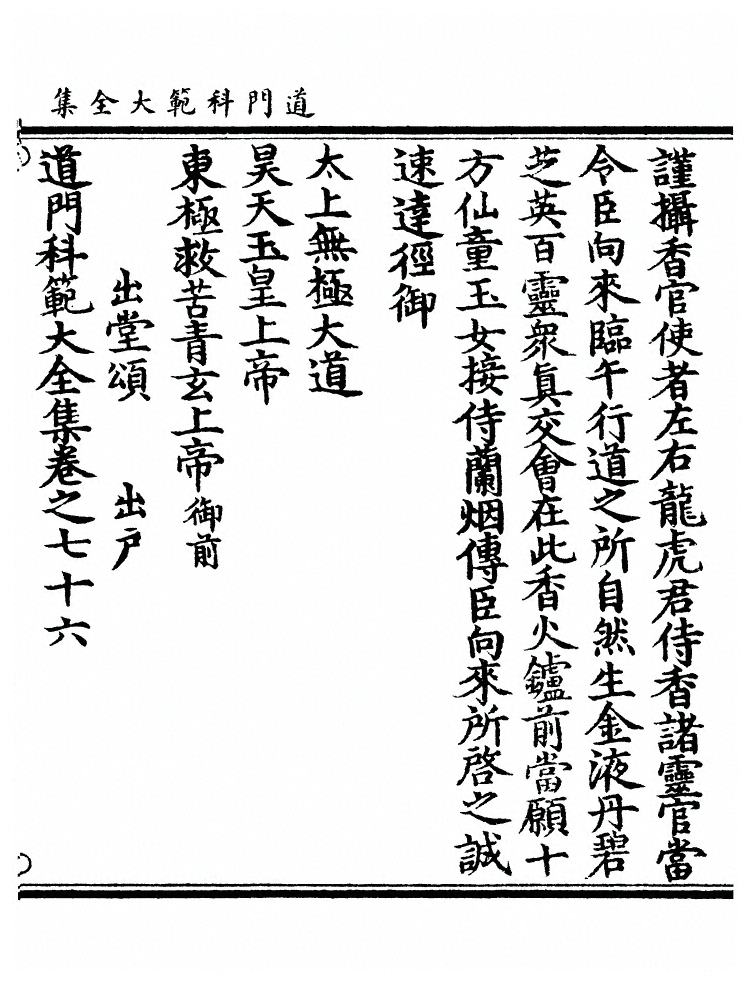 道門科範大全集
謹攝香官使者左右龍虎君侍香諸靈官當
令臣向來臨午行道之所自然生金液丹碧
芝英百靈衆眞交會在此香火鑪前當願十
方仙童玉女接侍蘭烟傳臣向來所啓之誠
速達徑御
太上無極大道
昊天玉皇上帝
東極救苦青玄上帝御前
出堂頌　出户
道門科範大全集卷之七十六